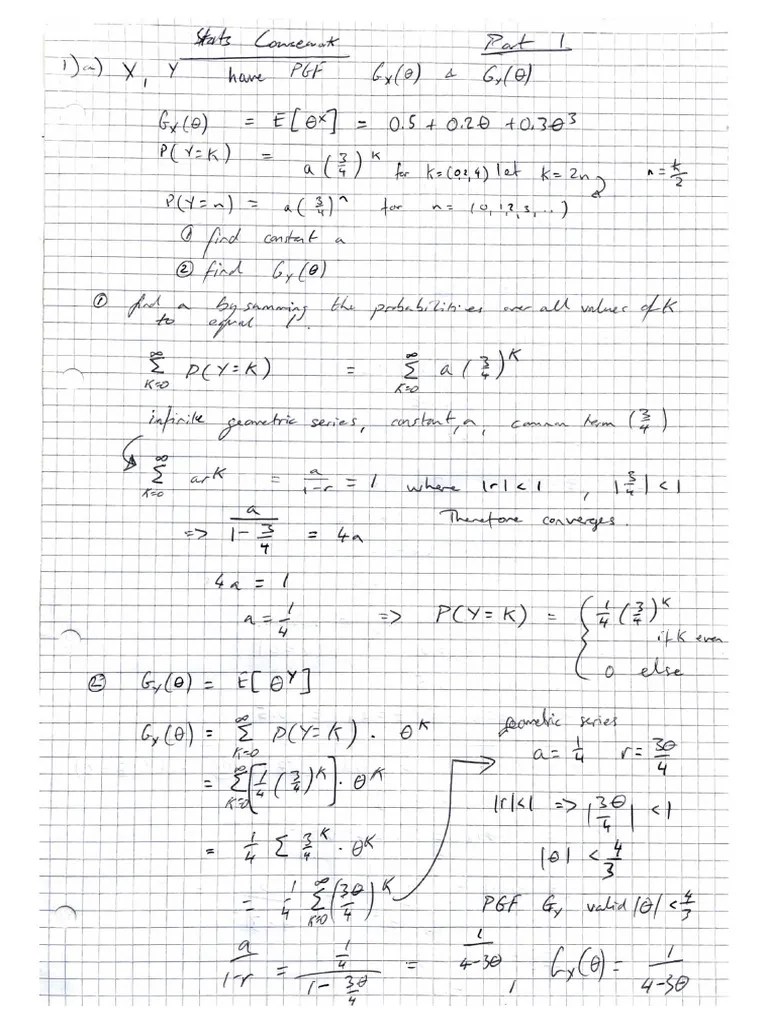 Stats Coursework Part 1
1) a) X, Y have PGF Gx(θ) & Gy(θ)
Gx(θ) = E[θ^X] = 0.5 + 0.2θ + 0.3θ³
P(Y=K) = a(3/4)^K for K=(0,2,4) let K=2n n=k/2
P(Y=n) = a(3/4)^n for n= (0,1,2,3,...)
① find constant a
② find Gy(θ)
① find a by summing the probabilitities over all values of K
to equal 1.
∞ΣK=0 P(Y=K) = ∞ΣK=0 a(3/4)^K
infinite geometric series, constant, a, common term (3/4)
∞ΣK=0 ar^K = a/(1-r) = 1 where |r|<1 , |3/4|<1
=> a/(1-3/4) = 4a Therefore converges.
4a = 1
a = 1/4 => P(Y=K) = { 1/4 (3/4)^K if K even
0 else
② Gy(θ) = E[θ^Y]
Gy(θ) = ∞ΣK=0 P(Y=K) . θ^K
geometric series
a = 1/4 r = 3θ/4
= ∞ΣK=0 [1/4 (3/4)^K] . θ^K
|r|<1 => |3θ/4| <1
= 1/4 Σ 3/4^K . θ^K
|θ| < 4/3
= 1/4 ∞ΣK=0 (3θ/4)^K
PGF Gy valid |θ| < 4/3
a/(1-r) = (1/4)/(1-3θ/4) = 1/(4-3θ) , Gy(θ) = 1/(4-3θ)